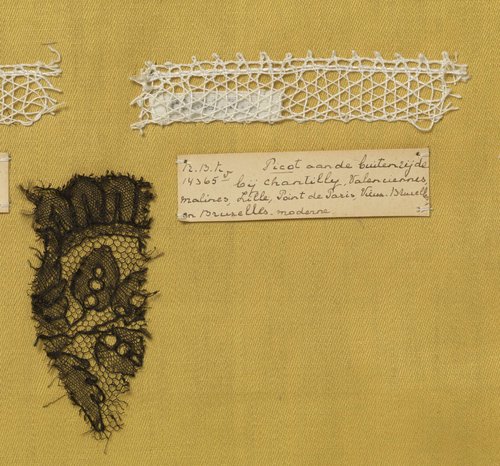 R.B.K. Picot aan de buitenzijde
14365v bij chantilly, Valenciennes,
malines, Lille, Point de Paris, Vieux-Bruxelles
en Bruxelles-moderne